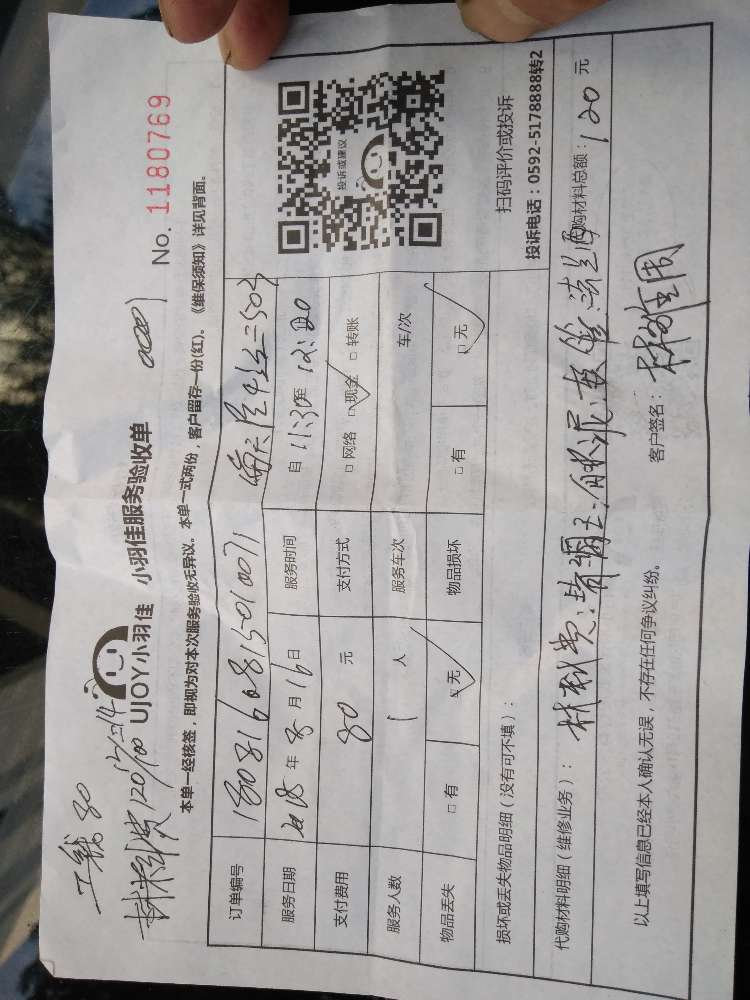 工钱80
材料费120
UJOY小羽佳 小羽佳服务验收单
No. 1180769
本单一经核签，即视为对本次服务验收无异议。本单一式两份，客户留存一份(红)。《维保须知》详见背面。
订单编号
服务日期 2018年8月16日 服务时间 自11:30至12:20
支付费用 80元 支付方式 □网络 □现金 □转账
服务人数 1人 服务车次 车/次
物品丢失 □有 □无 物品损坏 □有 □无
投诉或建议
扫码评价或投诉
投诉电话：0592-5178888转2
损坏或丢失物品明细（没有可不填）：
代购材料明细（维修业务）： 材料费：
代购材料总额：120元
以上填写信息已经本人确认无误，不存在任何争议纠纷。
客户签名：